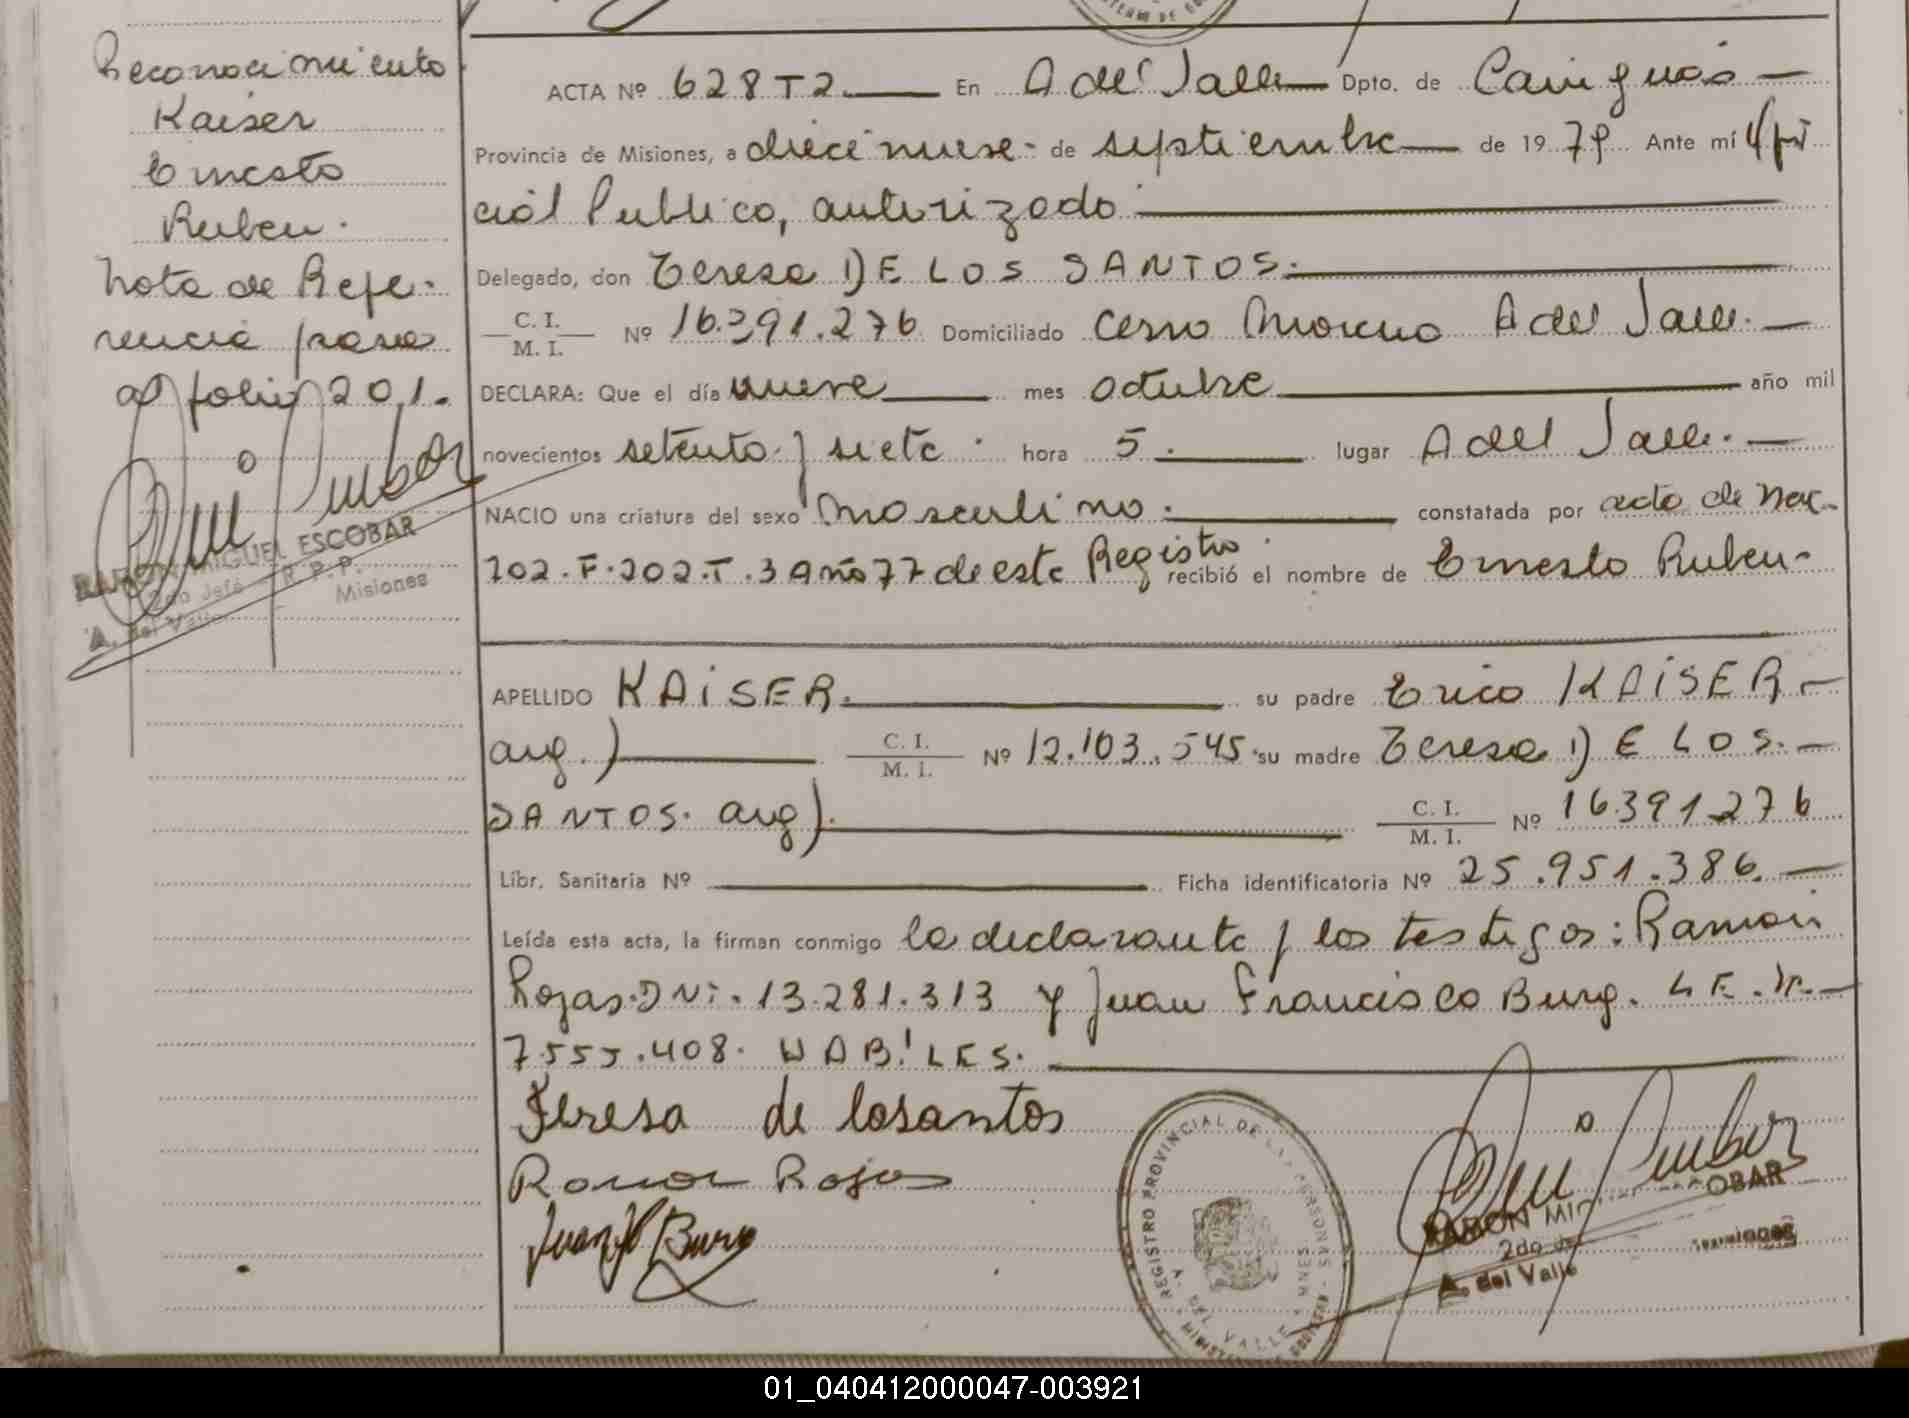 Reconocimiento
Kaiser
Ernesto
Ruben.
Nota de Refe-
rencia pasa
al folio 201.
RAMON MIGUEL ESCOBAR
2do Jefe R.P.P.
A. del Valle Misiones
ACTA Nº 628 T2 En A del Valle Dpto. de Cainguás
Provincia de Misiones, a diecinueve de septiembre de 19 79 Ante mí Ofi
cial Publico, autorizado
Delegado, don Teresa DE LOS SANTOS.
C. I.
M. I. Nº 16.391.276 Domiciliado Cerro Moreno A del Valle.
DECLARA: Que el día nueve mes octubre año mil
novecientos setenta y siete hora 5. lugar A del Valle.
NACIO una criatura del sexo Masculino. constatada por acta de Nac.
202. F. 202. T. 3 Año 77 de este Registro. recibió el nombre de Ernesto Ruben-
APELLIDO KAISER. su padre Erico KAISER
arg.) C. I.
M. I. Nº 12.103.545 su madre Teresa DE LOS.
SANTOS. arg). C. I.
M. I. Nº 16.391276
Libr. Sanitaria Nº Ficha identificatoria Nº 25.951.386.
Leída esta acta, la firman conmigo la declarante y los testigos: Ramón
Rojas. DNI. 13.281.313 y Juan Francisco Burg. L E. Nº
7.555.408. HABILES.
Teresa de losantos
Ramon Rojas
Juan F Burg
REGISTRO PROVINCIAL DE LAS PERSONAS
A. DEL VALLE MNES
2do
A. del Valle
Misiones
01_040412000047-003921